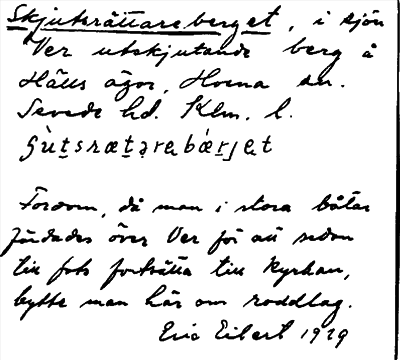 Skjutsrättareberget, i sjön
Ver utskjutande berg å
Hälls ägor, Horna sn.
Sevede hd. Klm. l.
Fordom, då man i stora båtar
färdades över Ver för att sedan
till fots fortsätta till kyrkan,
bytte man här om roddlag.
Eric Eilert 1929